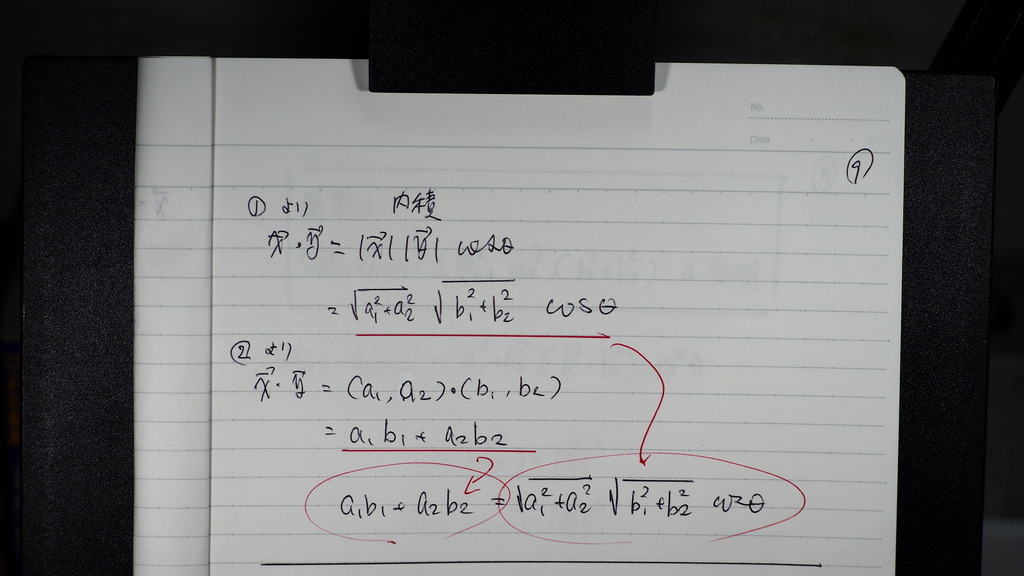 No.
Date
⑨
① より 内積
x⃗・y⃗ = |x⃗| |y⃗| cosθ
= √(a₁²+a₂²) √(b₁²+b₂²) cosθ
② より
x⃗・y⃗ = (a₁, a₂)・(b₁, b₂)
= a₁b₁ + a₂b₂
a₁b₁ + a₂b₂ = √(a₁²+a₂²) √(b₁²+b₂²) cosθ